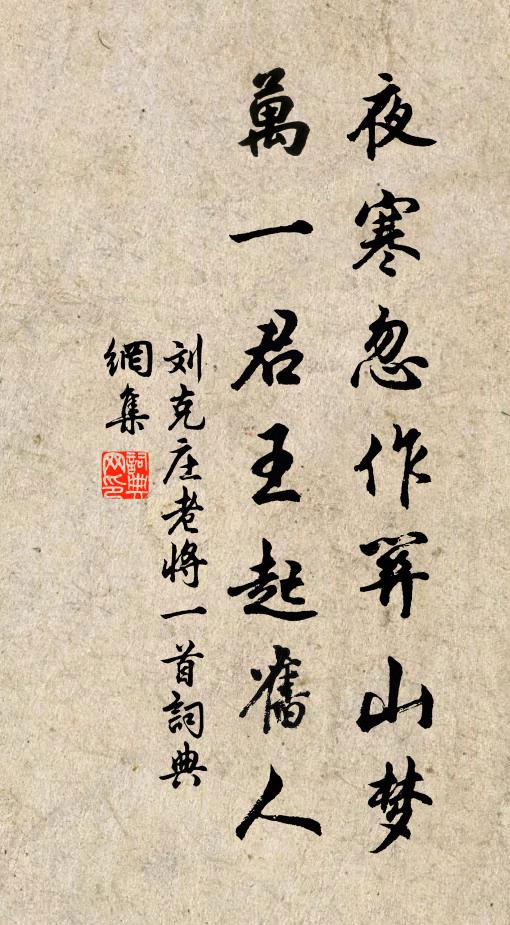 夜寒忽作關山梦
萬一君王起舊人
刘克庄老將一首詞典
網集
詞典
网印